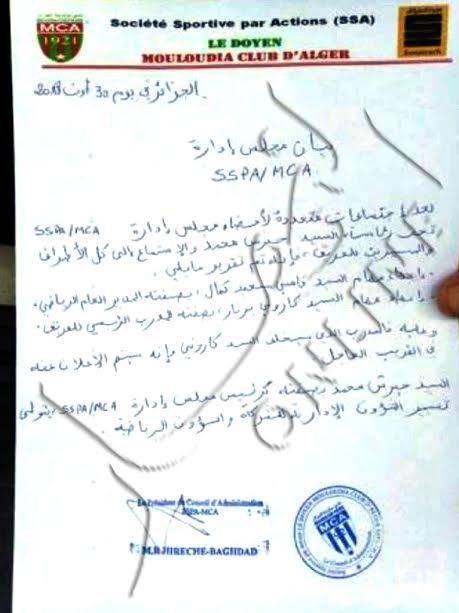 MCA
1921
Société Sportive par Actions (SSA)
LE DOYEN
MOULOUDIA CLUB D'ALGER
sonatrach
الجزائر في يوم 30 أوت 2018
بيان مجلس إدارة
SSPA/MCA
بعد إجتماعات متعددة لأعضاء مجلس إدارة SSPA/MCA
تحت رئاسة السيد حيرش محمد والإستماع إلى كل الأطراف
والمسيرين للفريق، وإنه تم تقرير مايلي:
- إعفاء مهام السيد قاسي سعيد كمال، بصفته المدير العام الرياضي.
- إعفاء مهام السيد كازوني برنار، بصفته المدرب الرئيسي للفريق.
وعليه فالمدرب الذي سيخلف السيد كازوني فإنه سيتم الإعلان عنه
في القريب العاجل
السيد حيرش محمد وبصفته كرئيس مجلس إدارة SSPA/MCA يتولى
تسيير الشؤون الإدارية للشركة والشؤون الرياضية.
Le Président du Conseil d'Administration
SSPA-MCA
M.B.HIRECHE-BAGHDAD
LE DOYEN MOULOUDIA CLUB D'ALGER
MCA
Le Conseil d'Administration